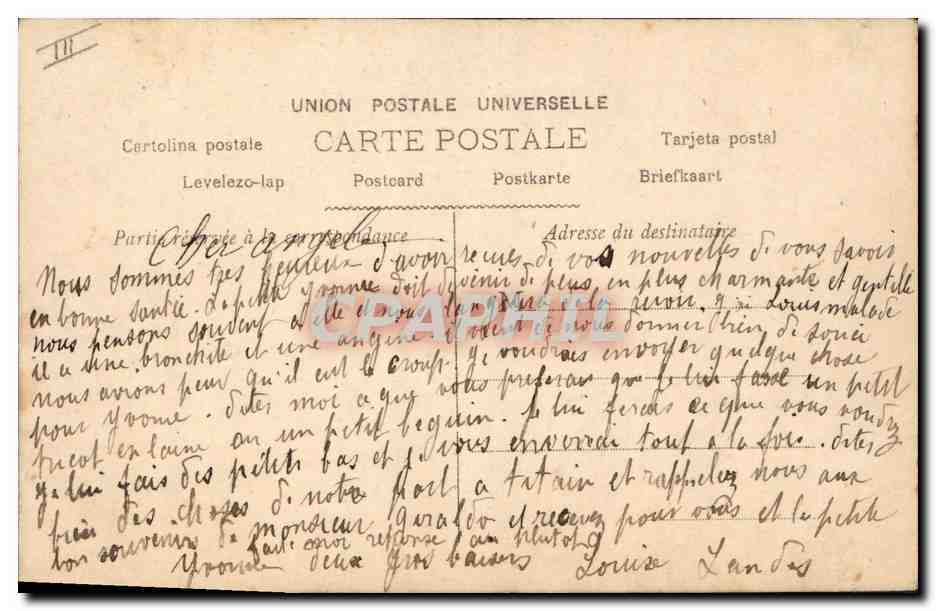 III
UNION POSTALE UNIVERSELLE
CARTE POSTALE
Cartolina postale
Tarjeta postal
Levelezo-lap
Postcard
Postkarte
Briefkaart
Partie réservée à la correspondance
Adresse du destinataire
Cher ange
Nous sommes très heureux d'avoir recues de vos nouvelles di vous savoir
en bonne santée. La petite Yvonne doit devenir de plus en plus charmante et gentille
nous pensons souvent a elle et nous de la revoir. j'ai Louis malade
il a une bronchite et une angine il vient de nous donner bien de souci
nous avions peur qu'il eut le croup. je voudrais envoyer quelque chose
pour Yvonne. dites moi ce que vous préferai que je lui fasse un petit
tricot en laine ou un petit beguin. Je lui ferais ce que vous voudrez
je lui fais des petits bas et je vous enverrai tout a la fois. dites
bien des choses de notre part a tatain et rappelez nous aux
bon souvenirs de monsieur Geraldo et recevez pour vous et la petite
faite moi reponse au plutot
Yvonne deux gros baisers Louise Landes
CPAPHIL